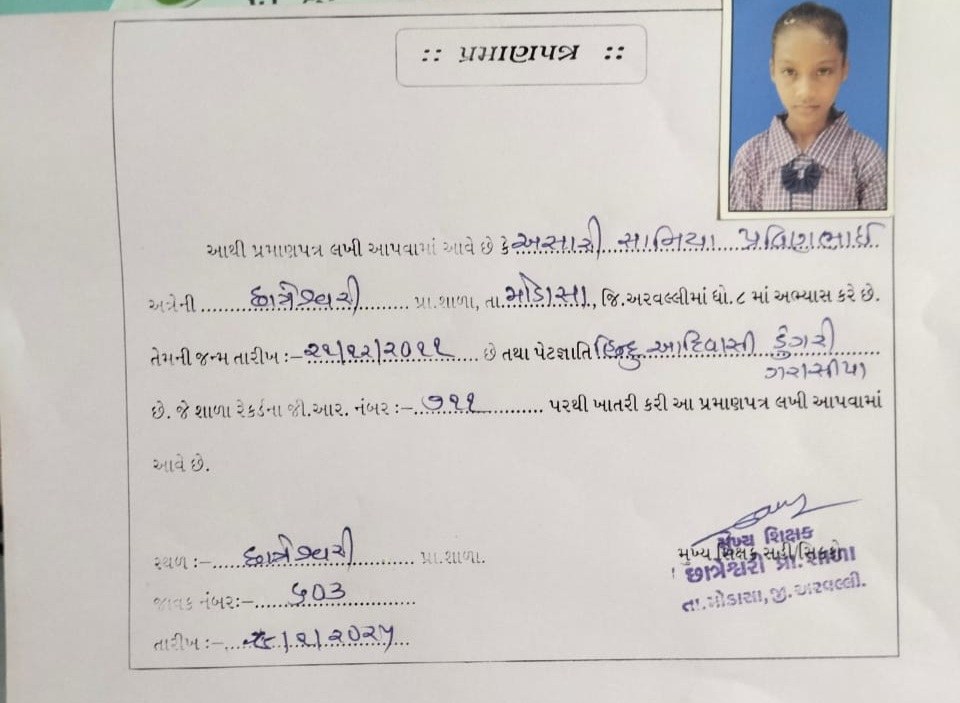 :: પ્રમાણપત્ર ::
આથી પ્રમાણપત્ર લખી આપવામાં આવે છે કે અસારી સાનિયા પ્રવિણભાઈ
અત્રેની છાત્રેશ્વરી પ્રા.શાળા, તા. મોડાસા, જિ.અરવલ્લીમાં ધો.૮ માં અભ્યાસ કરે છે.
તેમની જન્મ તારીખ :- ૨૧/૧૨/૨૦૧૧ છે તથા પેટાજ્ઞાતિ હિન્દુ આદિવાસી ડુંગરી
ગરાસીયા
છે. જે શાળા રેકર્ડના જી.આર. નંબર :- ૭૧૧ પરથી ખાતરી કરી આ પ્રમાણપત્ર લખી આપવામાં
આવે છે.
સ્થળ :- છાત્રેશ્વરી પ્રા.શાળા.
જાવક નંબર:- ૬૦૩
તારીખ :- /૧/૨૦૨૫
મુખ્ય શિક્ષક
મુખ્ય શિક્ષક સહી/સિક્કો
છાત્રેશ્વરી પ્રા. શાળા
તા.મોડાસા, જી.અરવલ્લી.